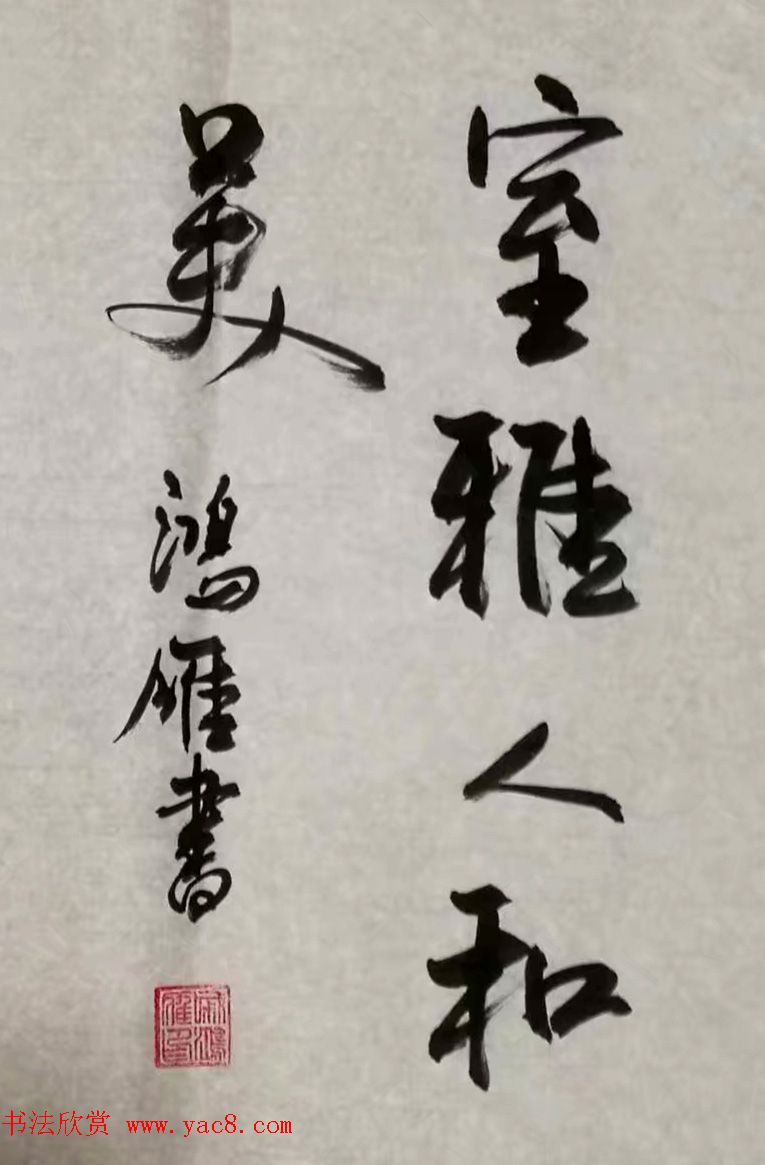 室雅人和
美 鸿雁書
书法欣赏 www.yac8.com